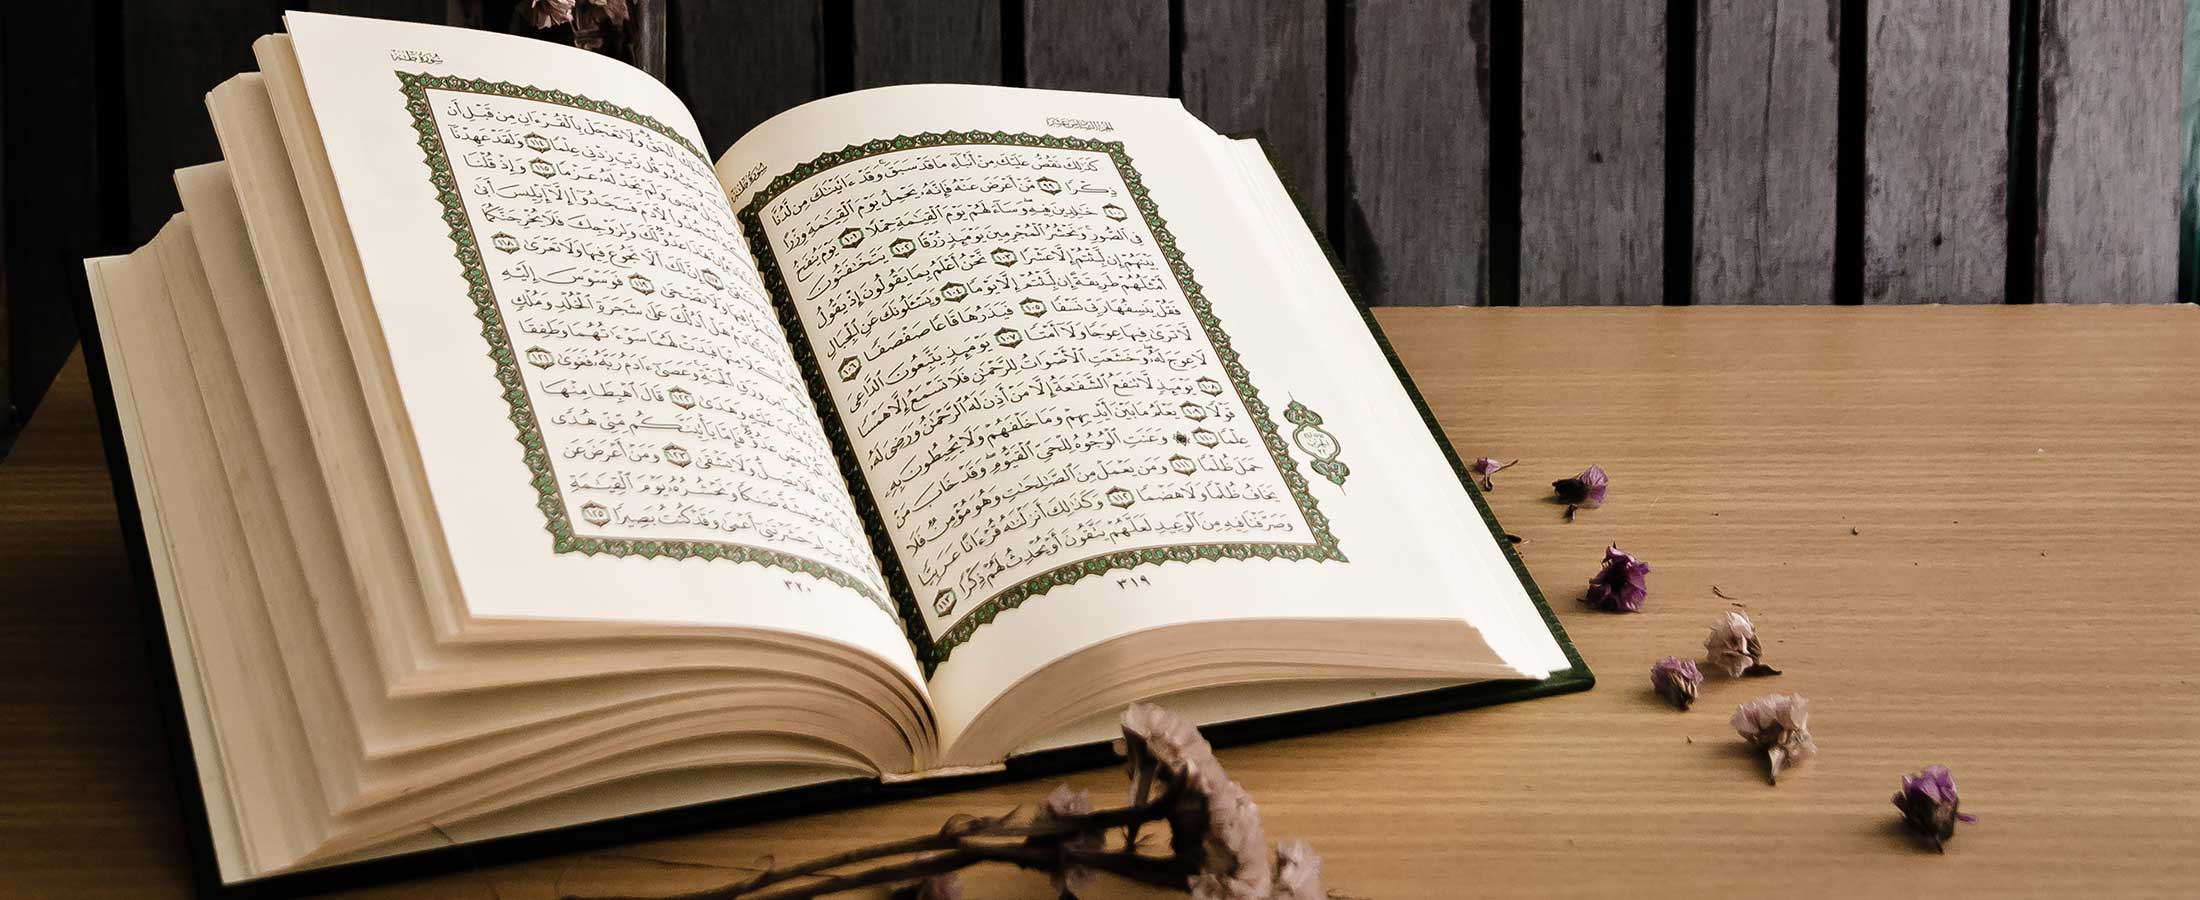 سُورَةُ طه
الجزء السادس عشر
كَذَٰلِكَ نَقُصُّ عَلَيْكَ مِنْ أَنۢبَآءِ مَا قَدْ سَبَقَ وَقَدْ ءَاتَيْنَٰكَ مِن لَّدُنَّا
ذِكْرًا ٩٩ مَّنْ أَعْرَضَ عَنْهُ فَإِنَّهُۥ يَحْمِلُ يَوْمَ ٱلْقِيَٰمَةِ وِزْرًا
١٠٠ خَٰلِدِينَ فِيهِ وَسَآءَ لَهُمْ يَوْمَ ٱلْقِيَٰمَةِ حِمْلًا ١٠١ يَوْمَ يُنفَخُ
فِى ٱلصُّورِ وَنَحْشُرُ ٱلْمُجْرِمِينَ يَوْمَئِذٍ زُرْقًا ١٠٢ يَتَخَٰفَتُونَ
بَيْنَهُمْ إِن لَّبِثْتُمْ إِلَّا عَشْرًا ١٠٣ نَّحْنُ أَعْلَمُ بِمَا يَقُولُونَ إِذْ يَقُولُ
أَمْثَلُهُمْ طَرِيقَةً إِن لَّبِثْتُمْ إِلَّا يَوْمًا ١٠٤ وَيَسْـَٔلُونَكَ عَنِ ٱلْجِبَالِ
فَقُلْ يَنسِفُهَا رَبِّى نَسْفًا ١٠٥ فَيَذَرُهَا قَاعًا صَفْصَفًا ١٠٦
لَّا تَرَىٰ فِيهَا عِوَجًا وَلَآ أَمْتًا ١٠٧ يَوْمَئِذٍ يَتَّبِعُونَ ٱلدَّاعِىَ
لَا عِوَجَ لَهُۥ وَخَشَعَتِ ٱلْأَصْوَاتُ لِلرَّحْمَٰنِ فَلَا تَسْمَعُ إِلَّا هَمْسًا
١٠٨ يَوْمَئِذٍ لَّا تَنفَعُ ٱلشَّفَٰعَةُ إِلَّا مَنْ أَذِنَ لَهُ ٱلرَّحْمَٰنُ وَرَضِىَ لَهُۥ
قَوْلًا ١٠٩ يَعْلَمُ مَا بَيْنَ أَيْدِيهِمْ وَمَا خَلْفَهُمْ وَلَا يُحِيطُونَ بِهِۦ
عِلْمًا ١١٠ ۞ وَعَنَتِ ٱلْوُجُوهُ لِلْحَىِّ ٱلْقَيُّومِ وَقَدْ خَابَ مَنْ
حَمَلَ ظُلْمًا ١١١ وَمَن يَعْمَلْ مِنَ ٱلصَّٰلِحَٰتِ وَهُوَ مُؤْمِنٌ فَلَا
يَخَافُ ظُلْمًا وَلَا هَضْمًا ١١٢ وَكَذَٰلِكَ أَنزَلْنَٰهُ قُرْءَانًا عَرَبِيًّا
وَصَرَّفْنَا فِيهِ مِنَ ٱلْوَعِيدِ لَعَلَّهُمْ يَتَّقُونَ أَوْ يُحْدِثُ لَهُمْ ذِكْرًا ١١٣
٣١٩
سُورَةُ طه
ٱلْحَقُّ وَلَا تَعْجَلْ بِٱلْقُرْءَانِ مِن قَبْلِ أَن
وَقُل رَّبِّ زِدْنِى عِلْمًا ١١٤ وَلَقَدْ عَهِدْنَآ
فَنَسِىَ وَلَمْ نَجِدْ لَهُۥ عَزْمًا ١١٥ وَإِذْ قُلْنَا
ٱسْجُدُوا۟ لِـَٔادَمَ فَسَجَدُوٓا۟ إِلَّآ إِبْلِيسَ أَبَىٰ
عَدُوٌّ لَّكَ وَلِزَوْجِكَ فَلَا يُخْرِجَنَّكُمَا
إِنَّ لَكَ أَلَّا تَجُوعَ فِيهَا وَلَا تَعْرَىٰ ١١٨
وَلَا تَضْحَىٰ ١١٩ فَوَسْوَسَ إِلَيْهِ
هَلْ أَدُلُّكَ عَلَىٰ شَجَرَةِ ٱلْخُلْدِ وَمُلْكٍ
فَبَدَتْ لَهُمَا سَوْءَٰتُهُمَا وَطَفِقَا
مِن وَرَقِ ٱلْجَنَّةِ وَعَصَىٰٓ ءَادَمُ رَبَّهُۥ فَغَوَىٰ ١٢١
عَلَيْهِ وَهَدَىٰ ١٢٢ قَالَ ٱهْبِطَا مِنْهَا
عَدُوٌّ فَإِمَّا يَأْتِيَنَّكُم مِّنِّى هُدًى
يَضِلُّ وَلَا يَشْقَىٰ ١٢٣ وَمَنْ أَعْرَضَ عَن
مَعِيشَةً ضَنكًا وَنَحْشُرُهُۥ يَوْمَ ٱلْقِيَٰمَةِ
حَشَرْتَنِىٓ أَعْمَىٰ وَقَدْ كُنتُ بَصِيرًا ١٢٥
٣٢٠